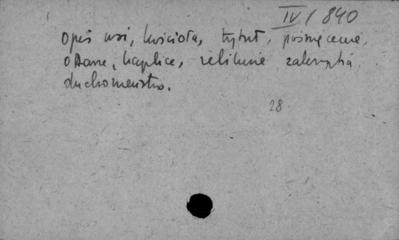 IV / 840
Opis wsi, kościoła, tytuł, poświęcenie,
ołtarze, kaplice, relikwie zakrystia,
duchowieństwo.
28